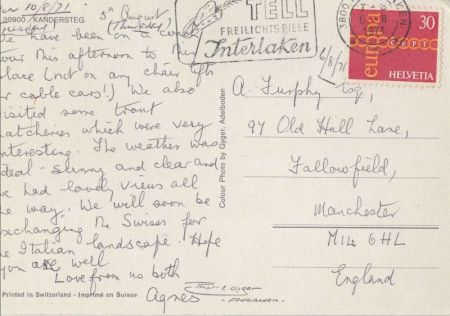 10/8/71
20900 / KANDERSTEG
3rd August
(Thursday)
We have been on a coach
tour this afternoon to this
place (not on any chair lifts
or cable cars!) We also
visited some trout
hatcheries which were very
interesting. The weather was
ideal - sunny and clear and
we had lovely views all
the way. We will soon be
exchanging the Swiss for
the Italian landscape. Hope
you are well.
Love from us both
Agnes
Printed in Switzerland - Imprimé en Suisse
Colour Photo by Gyger, Adelboden
TELL
FREILICHTSPIELE
Interlaken
3800
1971
6/8/71
europa
CEPT
30
HELVETIA
A. Furphy Esq,
97 Old Hall Lane,
Fallowfield,
Manchester
M14 6HL
England
Gyger
Adelboden